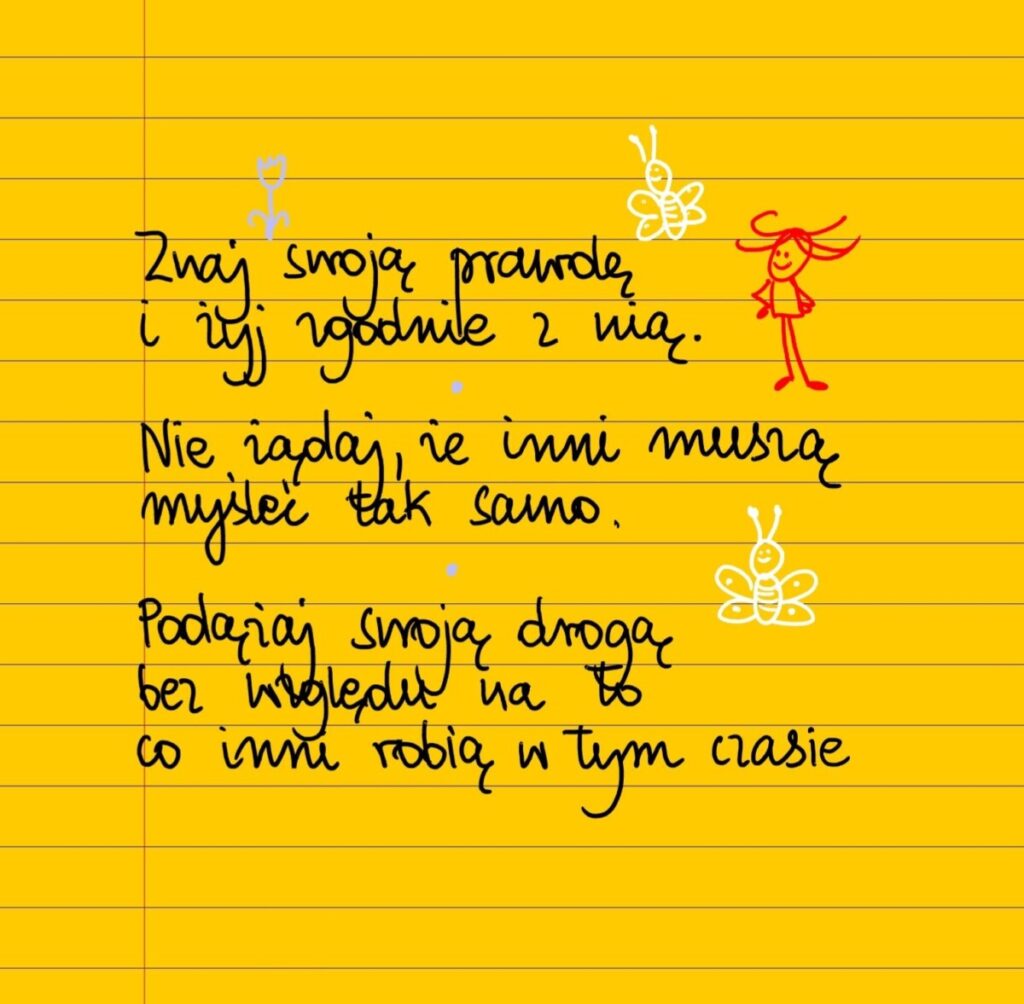 Znaj swoją prawdę
i żyj zgodnie z nią.
Nie żądaj, że inni muszą
myśleć tak samo.
Podążaj swoją drogą
bez względu na to
co inni robią w tym czasie